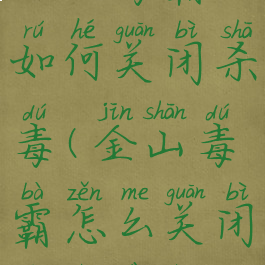 rú hé guān bì shā
如何关闭杀
dú jīn shān dú
毒(金山毒
bà zěn me guān bì
霸怎么关闭